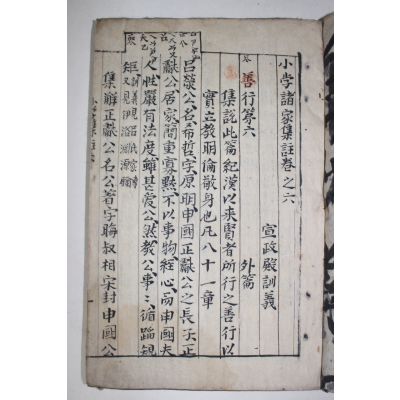 小學諸家集註卷之六
宣政殿訓義
善行第六 外篇
集説此篇紀漢以來賢者所行之善行以
實立教明倫敬身也凡八十一章
呂滎公名希哲字原明申國正獻公之長子正
獻公居家簡重寡默不以事物經心而申國夫
人性嚴有法度雖甚愛公然教公事事循蹈規
矩
集解正獻公名公著字晦叔相宋封申國公